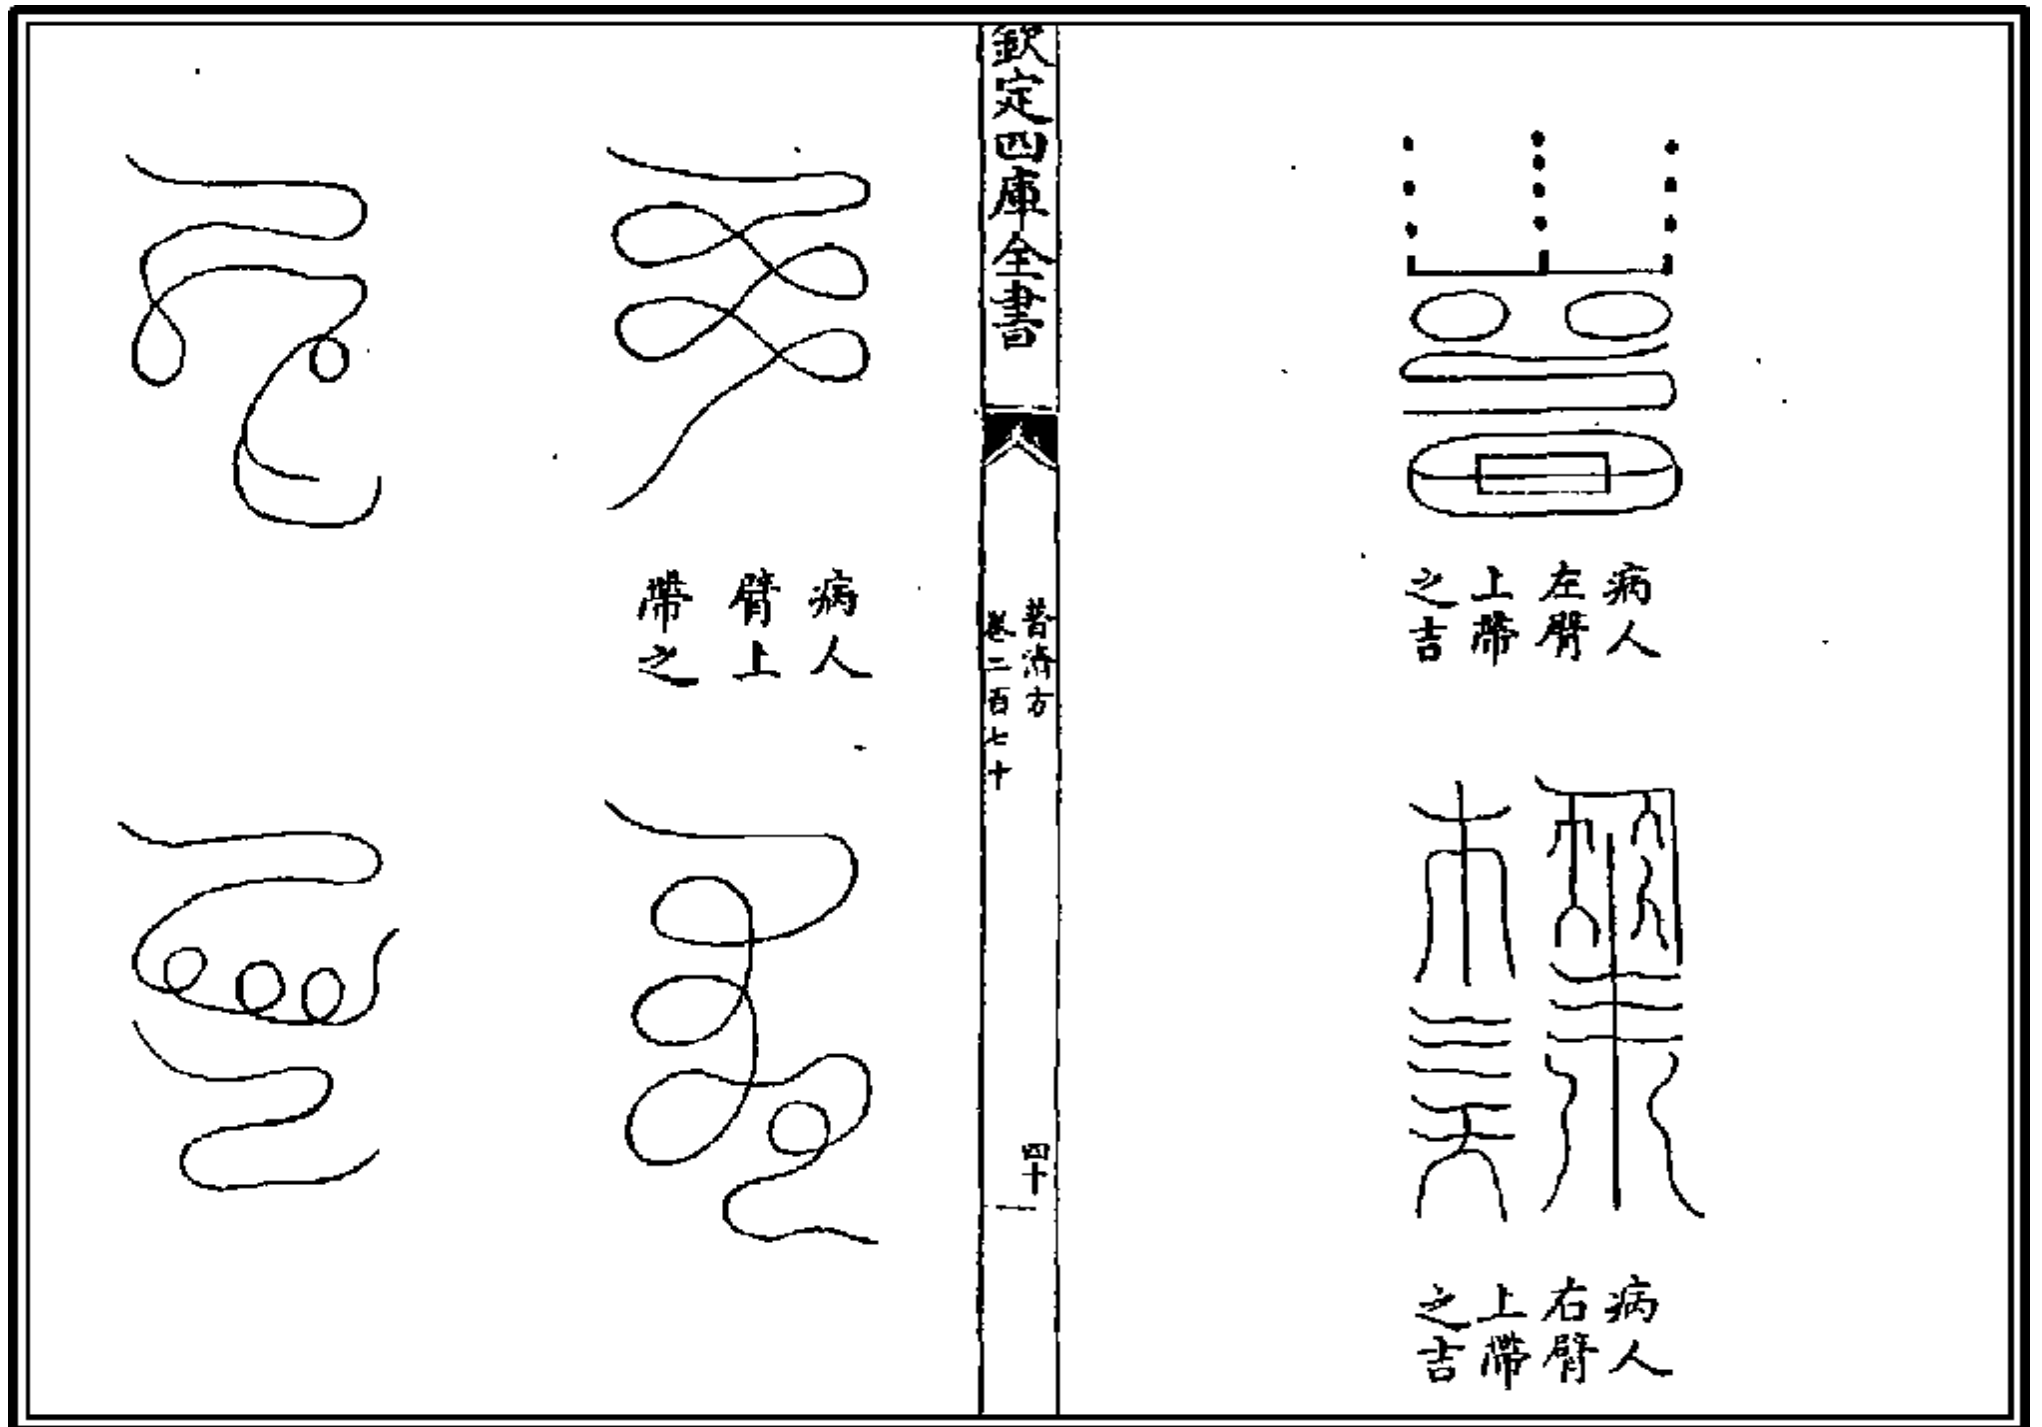 病人
左臂
上帶
之吉
病人
右臂
上帶
之吉
欽定四庫全書
普濟方
卷二百七十
四十一
病人
臂上
帶之